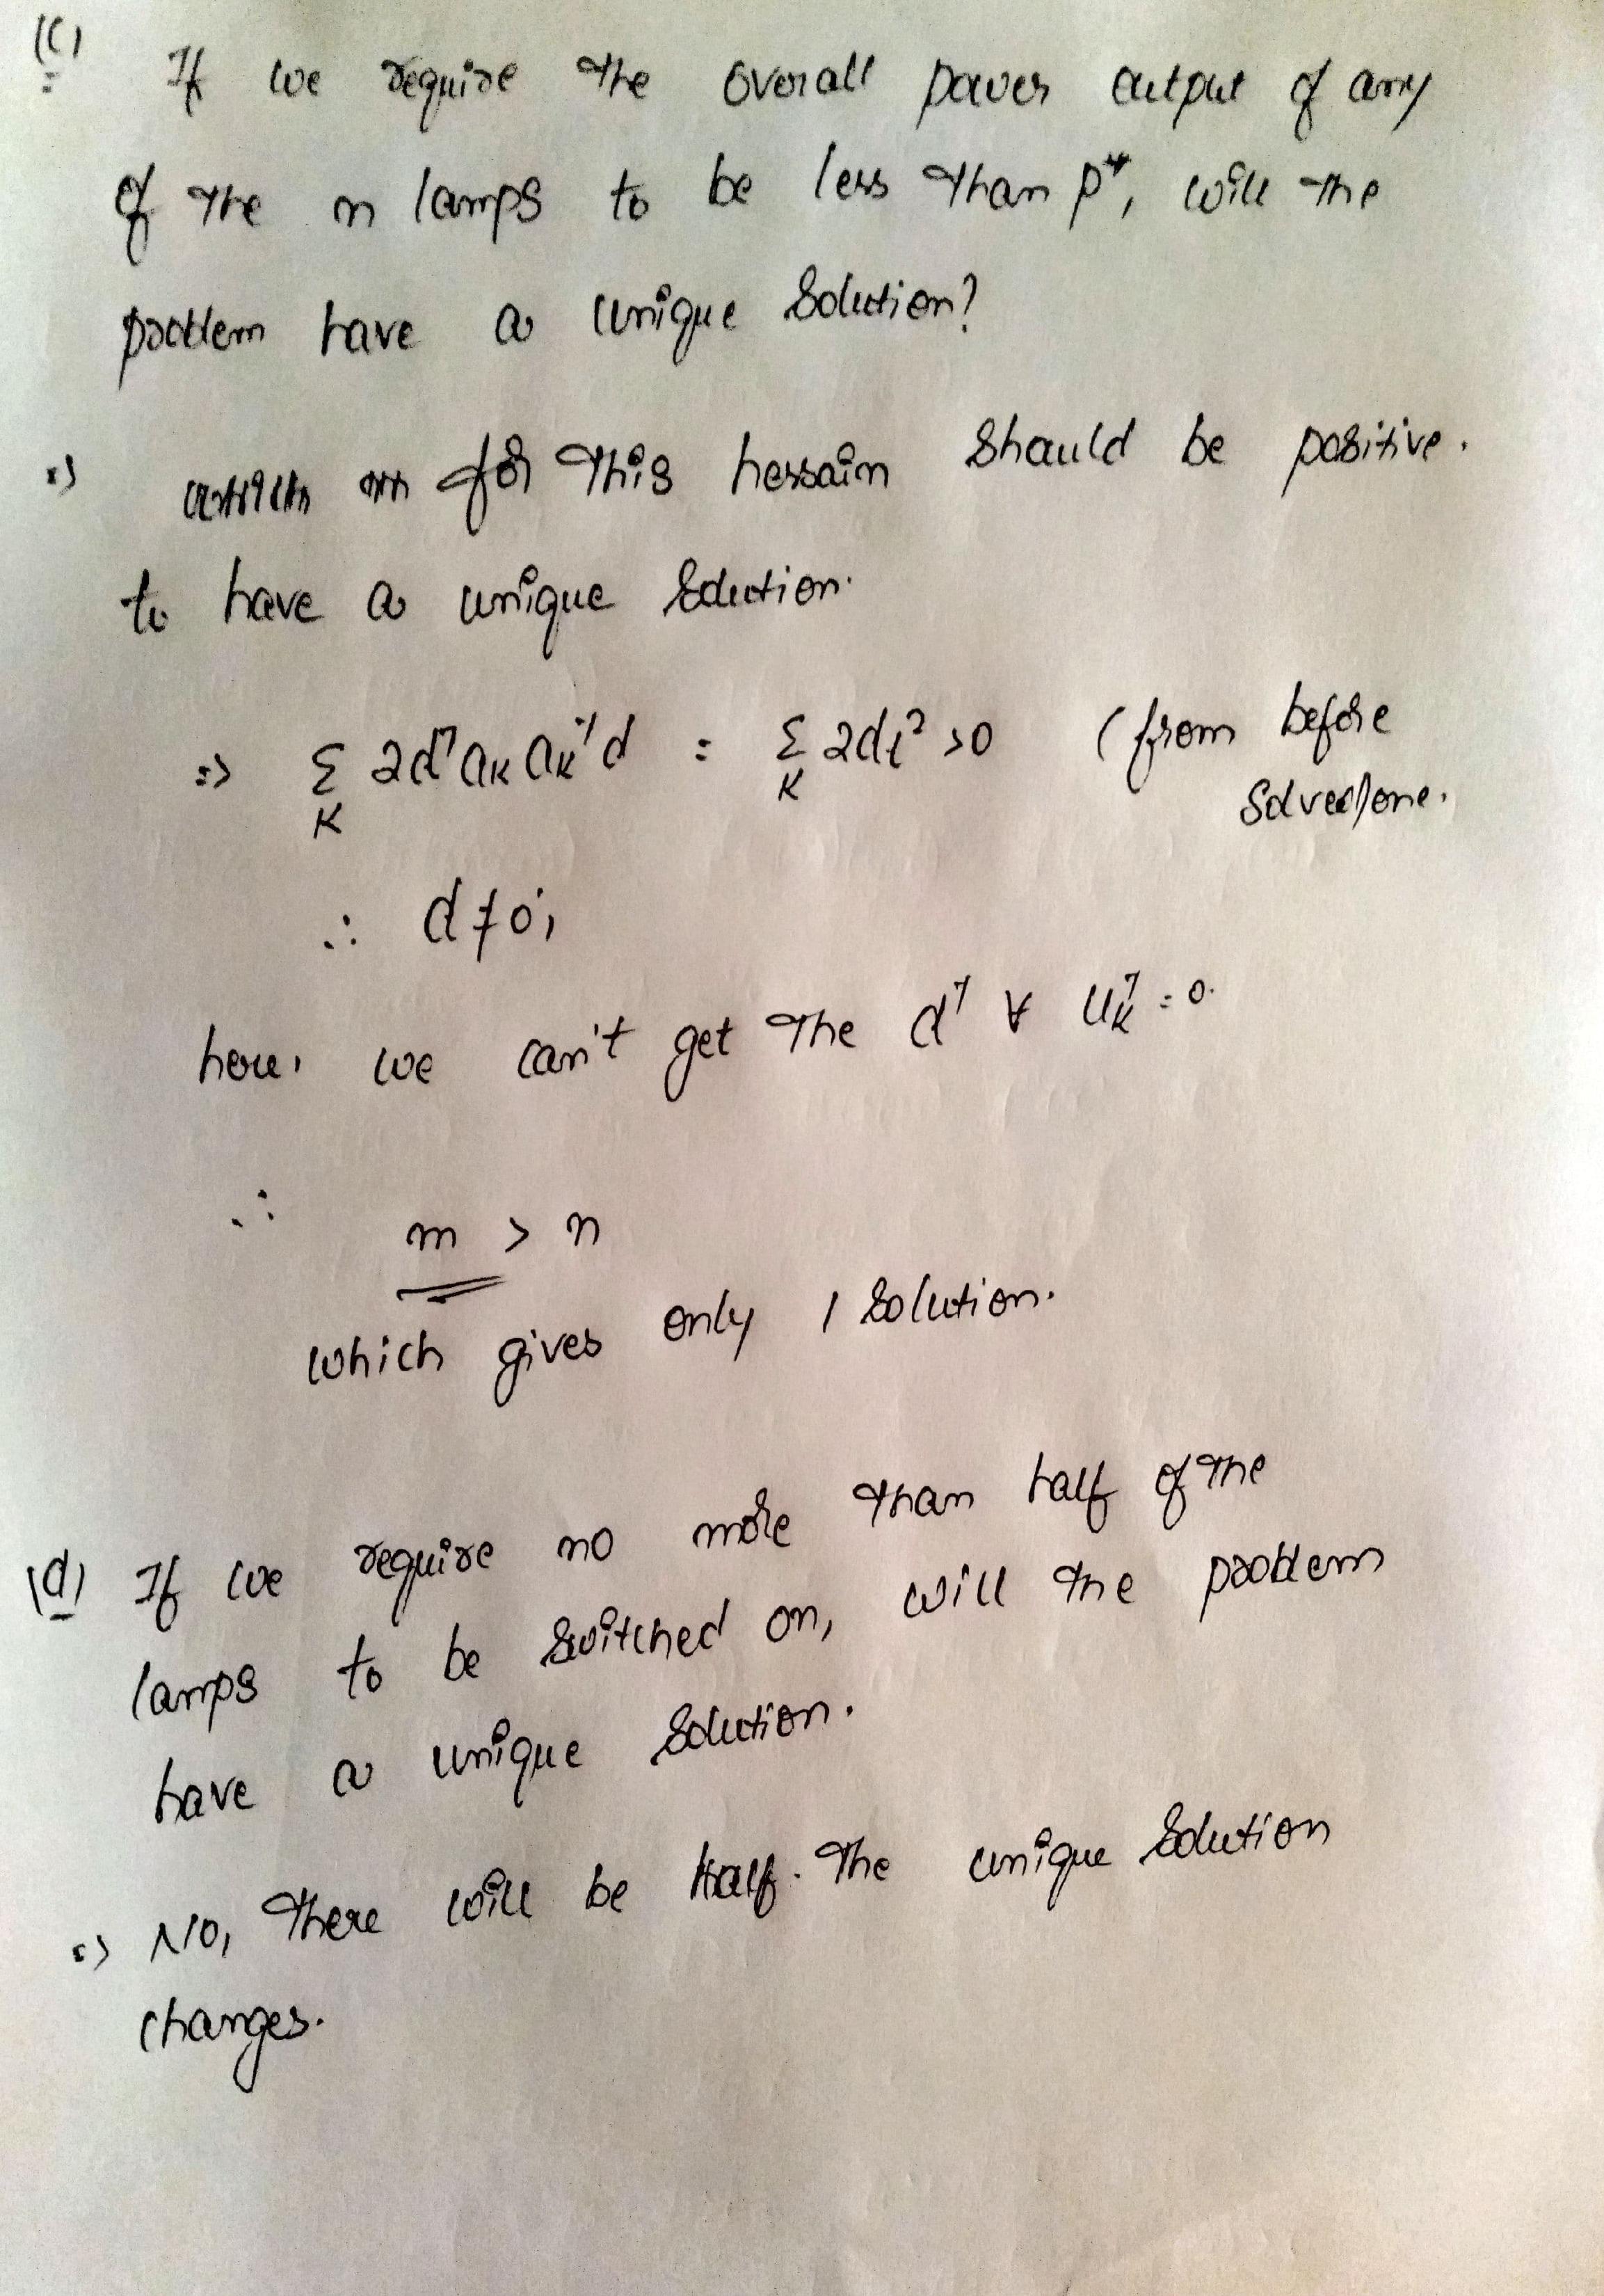 (c) If we require the overall power output of any
of the n lamps to be less than p*, will the
problem have a unique solution?
=> for this hessain should be positive.
to have a unique solution.
=> Σ 2dᵀ aₖ aₖᵀ d = Σ 2dᵢ² >0 (from before
K K solved one.
∴ d ≠ 0,
here, we can't get the dᵀ ∀ = 0.
∴ m > n
which gives only 1 solution.
(d) If we require no more than half of the
lamps to be switched on, will the problem
have a unique solution.
=> No, There will be half. The unique solution
changes.